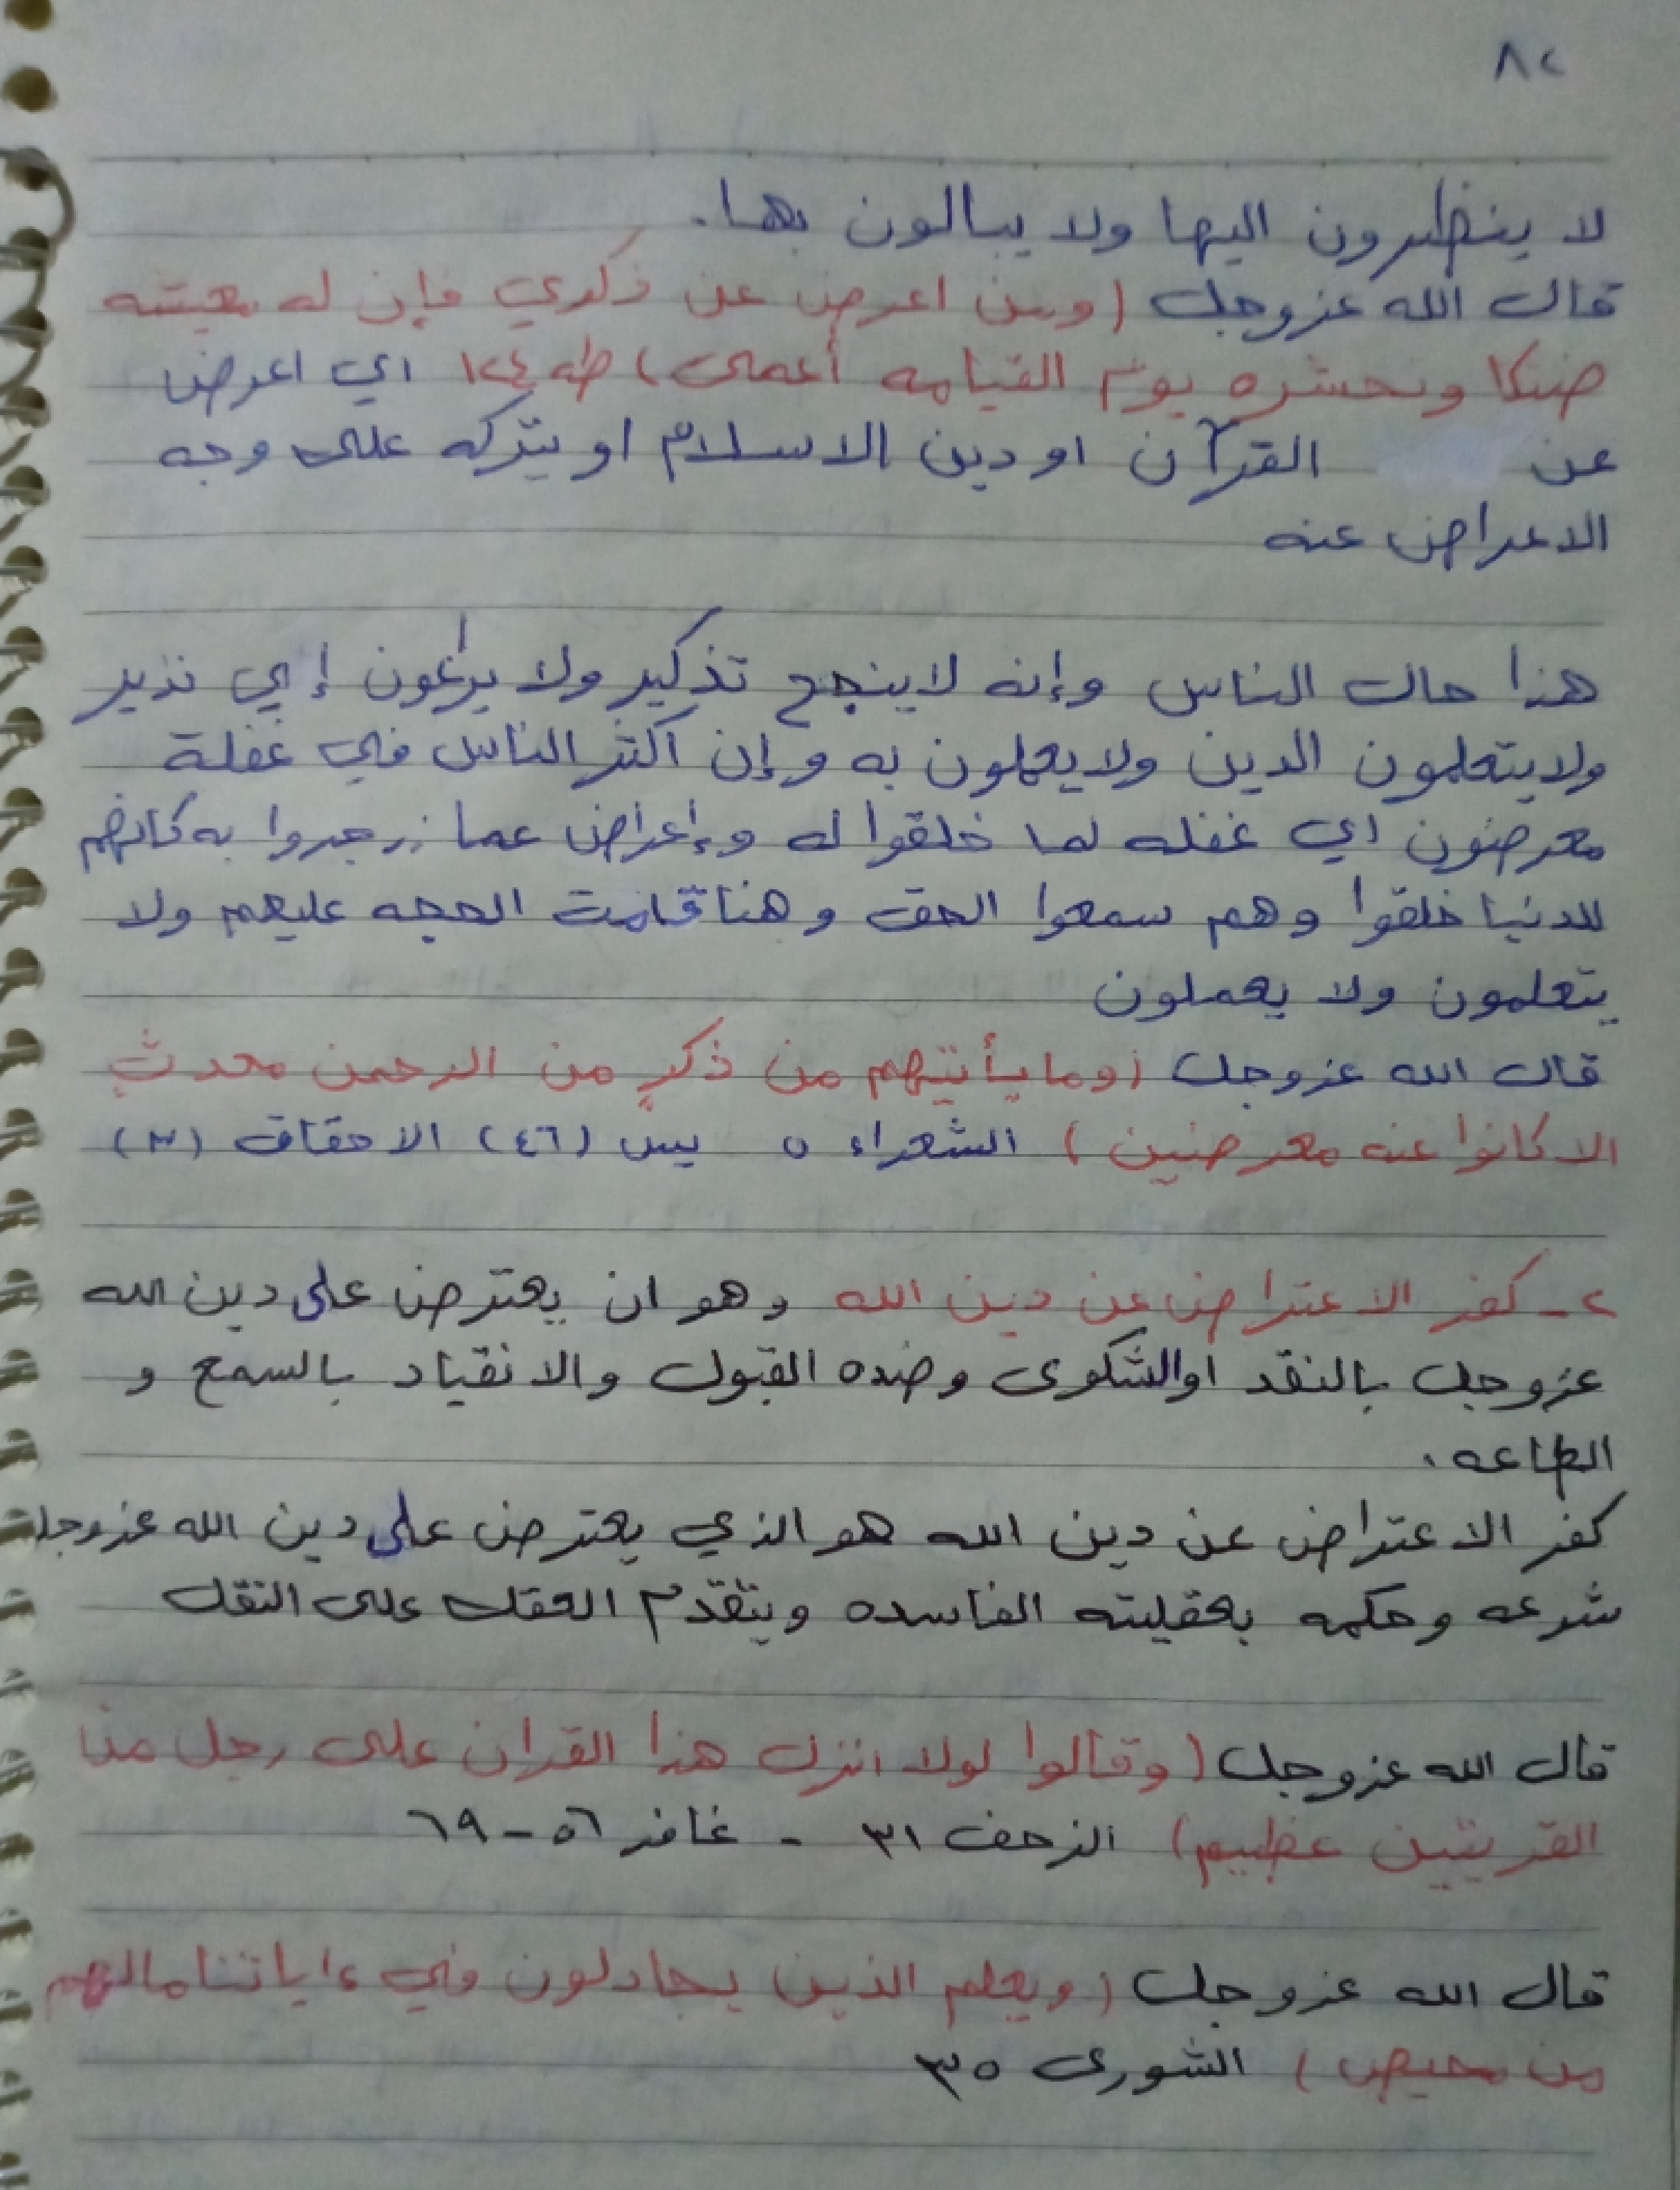 ٨٢
لا ينظرون اليها ولا يبالون بها.
قال الله عزوجل (ومن اعرض عن ذكري فإن له معيشه
ضنكا ونحشره يوم القيامه أعمى) طه ١٢٤ اي اعرض
عن القرآن او دين الاسلام او يتركه على وجه
الاعراض عنه
هذا حال الناس وإنه لا ينجح تذكير ولا يراعون إلي نذير
ولا يتعلمون الدين ولا يعملون به وإن أكثر الناس في غفلة
معرضون اي غفله لما خلقوا له وإعراض عما زجروا به كانهم
للدنيا خلقوا وهم سمعوا الحق وهنا قامت الحجه عليهم ولا
يتعلمون ولا يعملون
قال الله عزوجل (وما يأتيهم من ذكرٍ من الرحمن محدثٍ
الا كانوا عنه معرضين) الشعراء ٥ يس (٤٦) الاحقاف (٣)
٢- كفر الاعتراض عن دين الله وهو ان يعترض على دين الله
عزوجل بالنقد او الشكوى وضده القبول والانقياد بالسمع و
الطاعه.
كفر الاعتراض عن دين الله هو الذي يعترض على دين الله عزوجل
شرعه وحكمه بعقليته الفاسده ويتقدم العقل على النقل
قال الله عزوجل (وقالوا لولا انزل هذا القران على رجل من
القريتين عظيم) الزحف ٣١ - غافر ٥٦ - ٦٩
قال الله عزوجل (ويعلم الذين يجادلون في ءاياتنا مالهم
من محيص) الشورى ٣٥